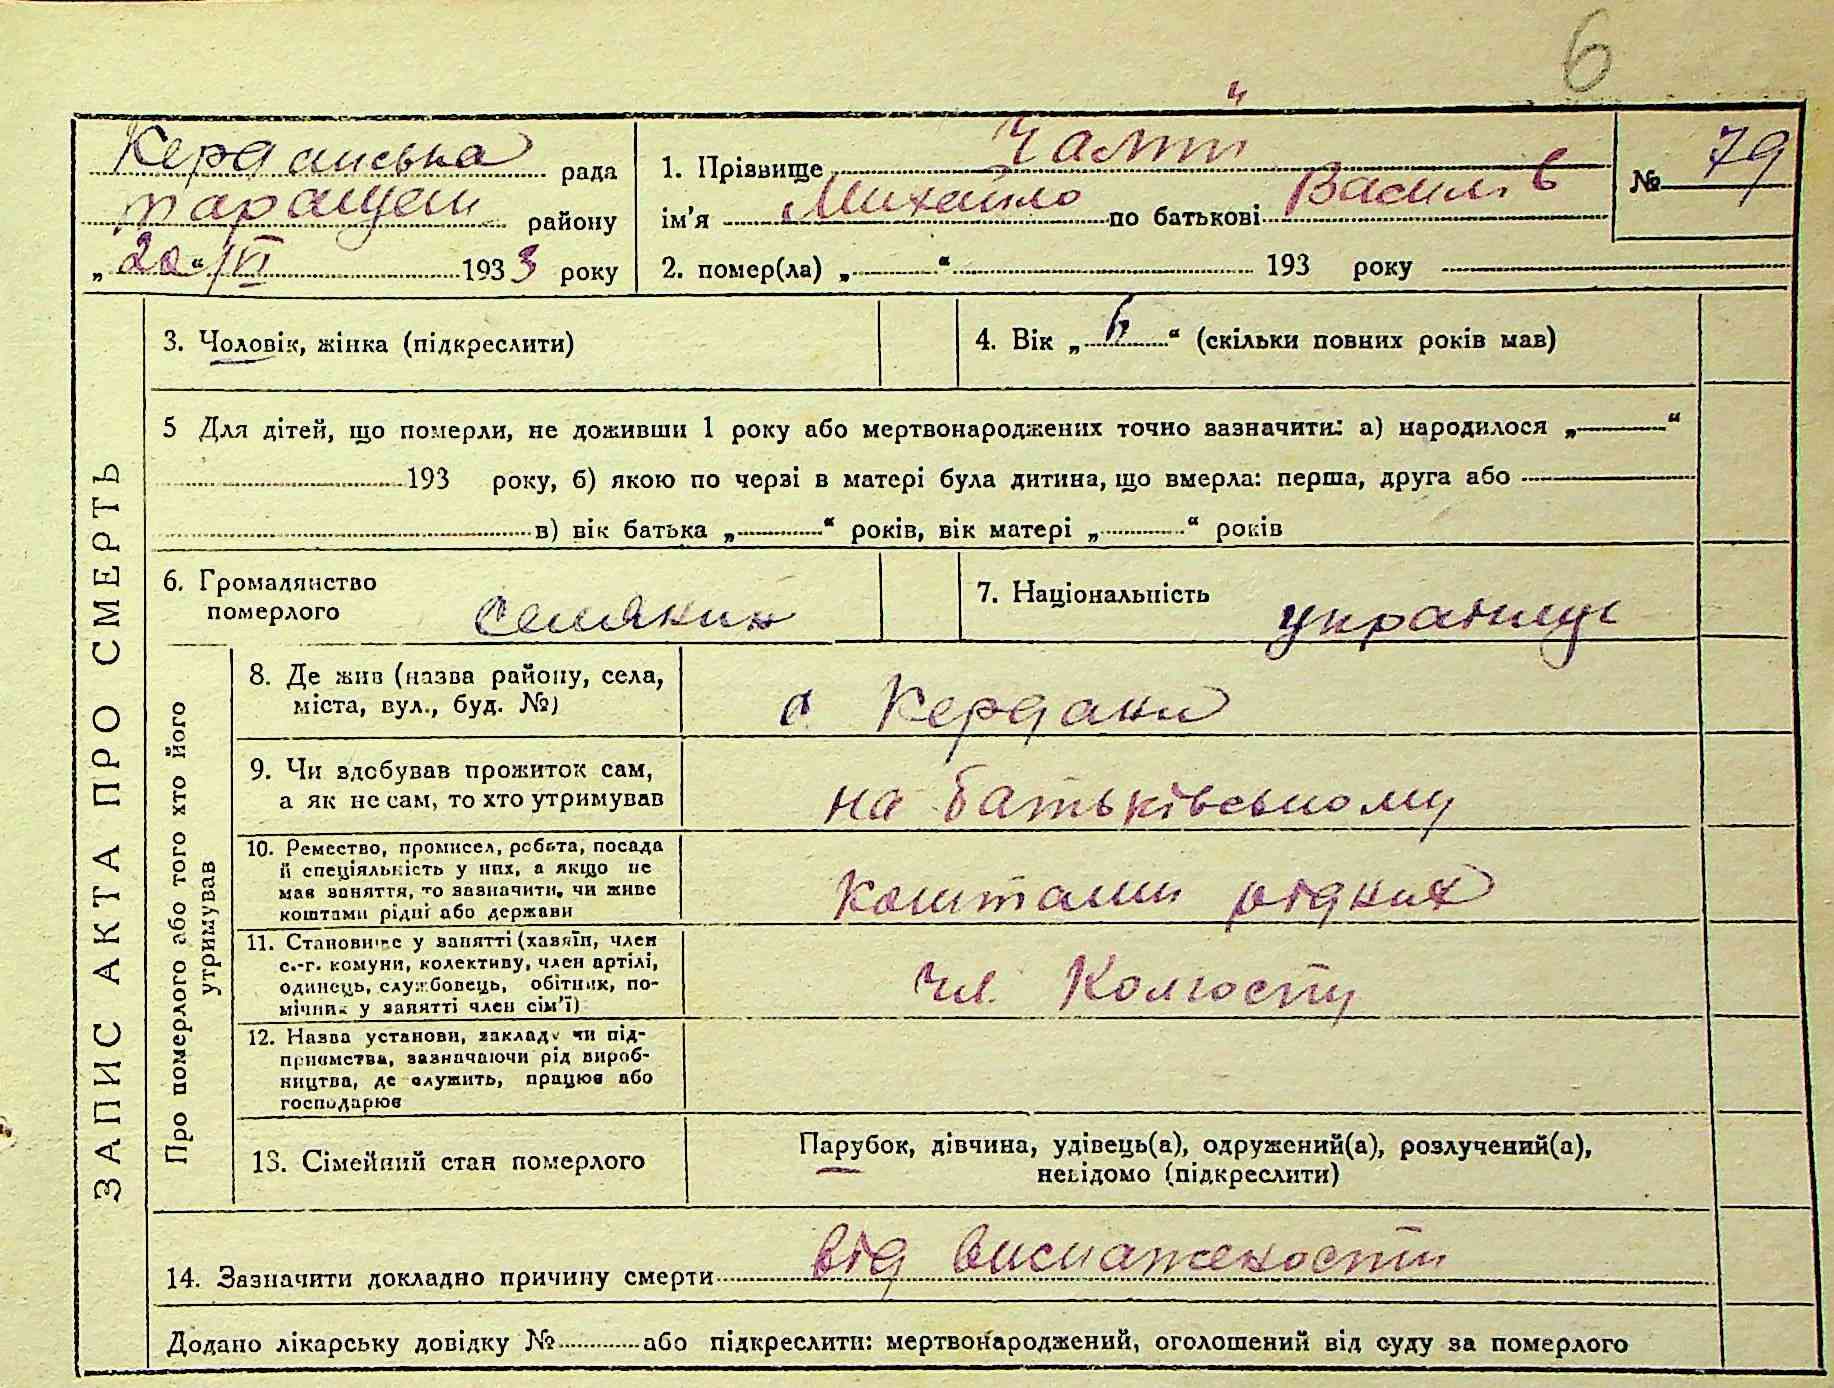 6
Керданська рада
таращан району
„20“/VI 1933 року
1. Прізвище
ім'я Михайло по батькові Василів
2. помер(ла) „ “ 193 року
№ 79
ЗАПИС АКТА ПРО СМЕРТЬ
3. Чоловік, жінка (підкреслити)
4. Вік „6“ (скільки повних років мав)
5 Для дітей, що померли, не доживши 1 року або мертвонароджених точно зазначити: а) народилося „ “
193 року, б) якою по черзі в матері була дитина, що вмерла: перша, друга або
в) вік батька „ “ років, вік матері „ “ років
6. Громадянство
померлого
селянин
7. Національність українц
Про померлого або того хто його
утримував
8. Де жив (назва району, села,
міста, вул., буд. №)
с Кердани
9. Чи здобував прожиток сам,
а як не сам, то хто утримував
на батьківському
10. Ремество, промисел, робота, посада
й спеціяльність у них, а якщо не
мав заняття, то зазначити, чи живе
коштами рідні або держави
коштами рідних
11. Становище у занятті (хазяїн, член
с.-г. комуни, колективу, член артілі,
одинець, службовець, обітник, по-
мічник у занятті член сім'ї)
чл. Колгоспу
12. Назва установи, закладу чи під-
приємства, зазначаючи рід вироб-
ництва, де служить, працює або
господарює
13. Сімейний стан померлого
Парубок, дівчина, удівець(а), одружений(а), розлучений(а),
невідомо (підкреслити)
14. Зазначити докладно причину смерти від виснаження
Додано лікарську довідку № або підкреслити: мертвонароджений, оголошений від суду за померлого